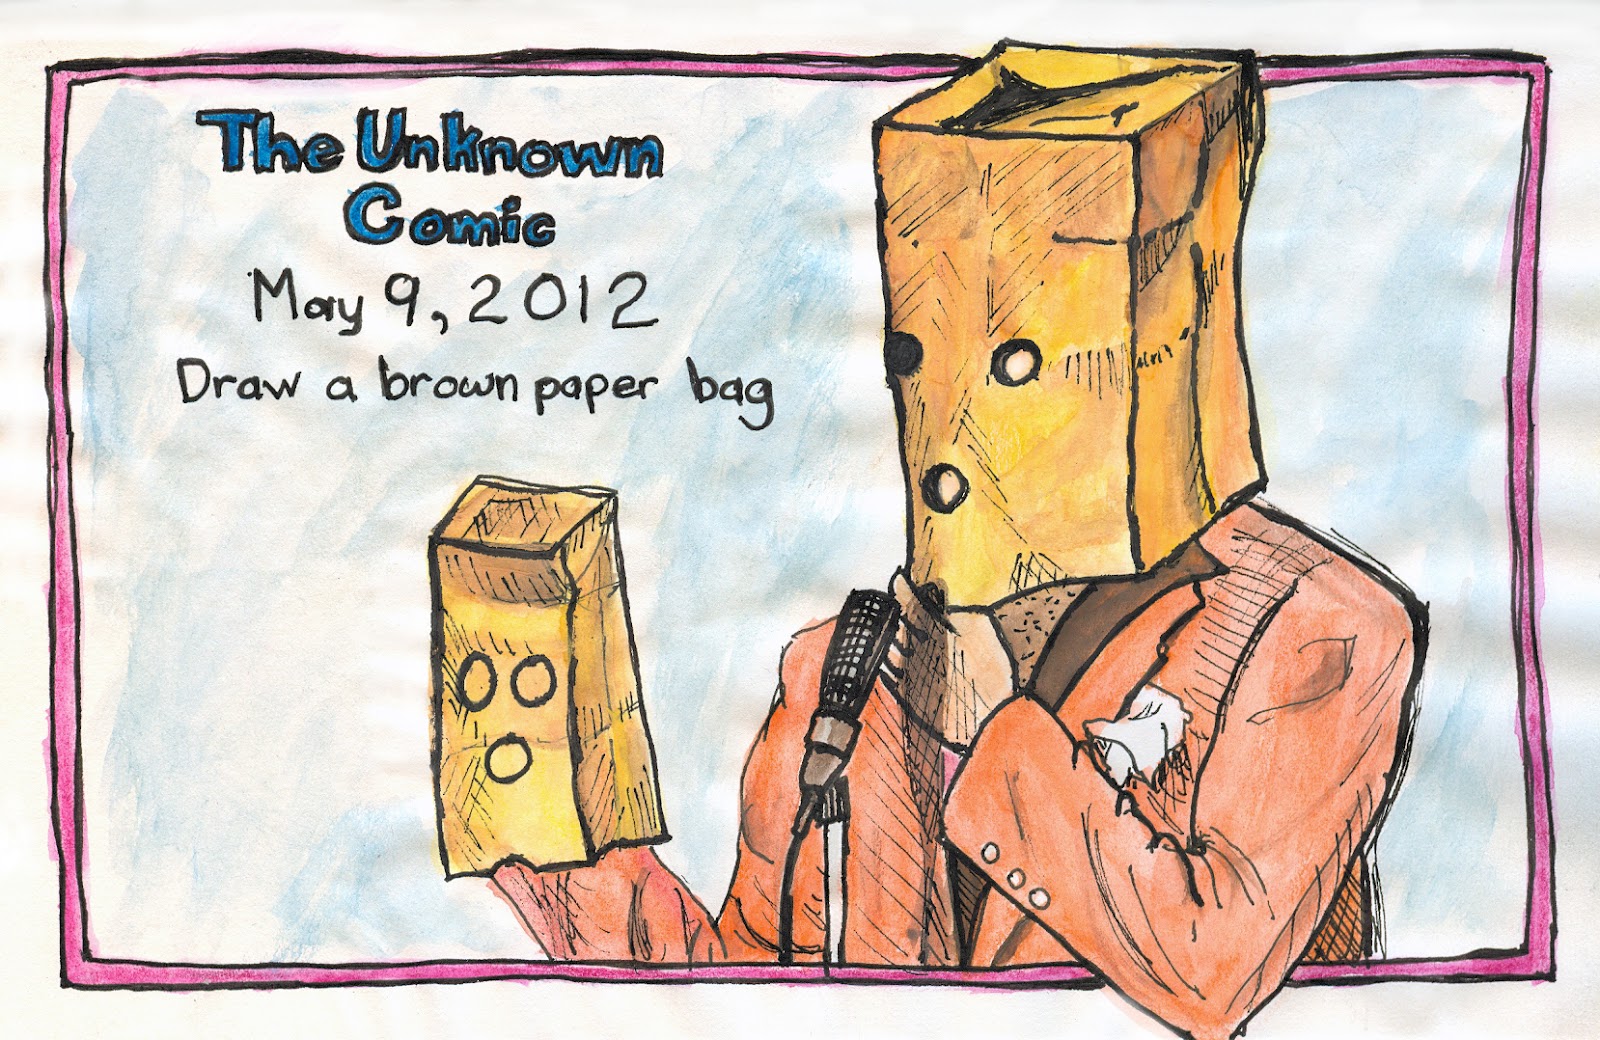 The Unknown
Comic
May 9, 2012
Draw a brown paper bag